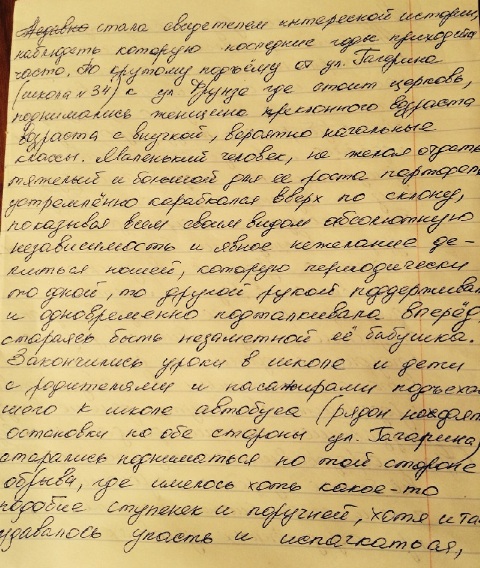 Недавно стала свидетелем интересной истории,
наблюдать которую последние годы приходится
часто. По крутому подъёму от ул. Гагарина
(школа №34) к ул. Фрунзе где стоит церковь,
поднимались женщина преклонного возраста
возраста с внучкой, вероятно начальные
классы. Маленький человек, не желая отдать
тяжелый и большой для ее роста портфель
устремлённо карабкался вверх по склону,
показывая всем своим видом абсолютную
независимость и явное нежелание де-
литься ношей, которую периодически
то одной, то другой рукой поддерживала
и одновременно подталкивала вперёд,
стараясь быть незаметной её бабушка.
Закончились уроки в школе и дети
с родителями и пассажирами подъехав
шего к школе автобуса (рядом находятся
остановки по обе стороны ул. Гагарина)
старались подниматься по той стороне
обрыва, где имелось хоть какое-то
подобие ступенек и поручней, хотя и там
удавалось упасть и испачкаться,